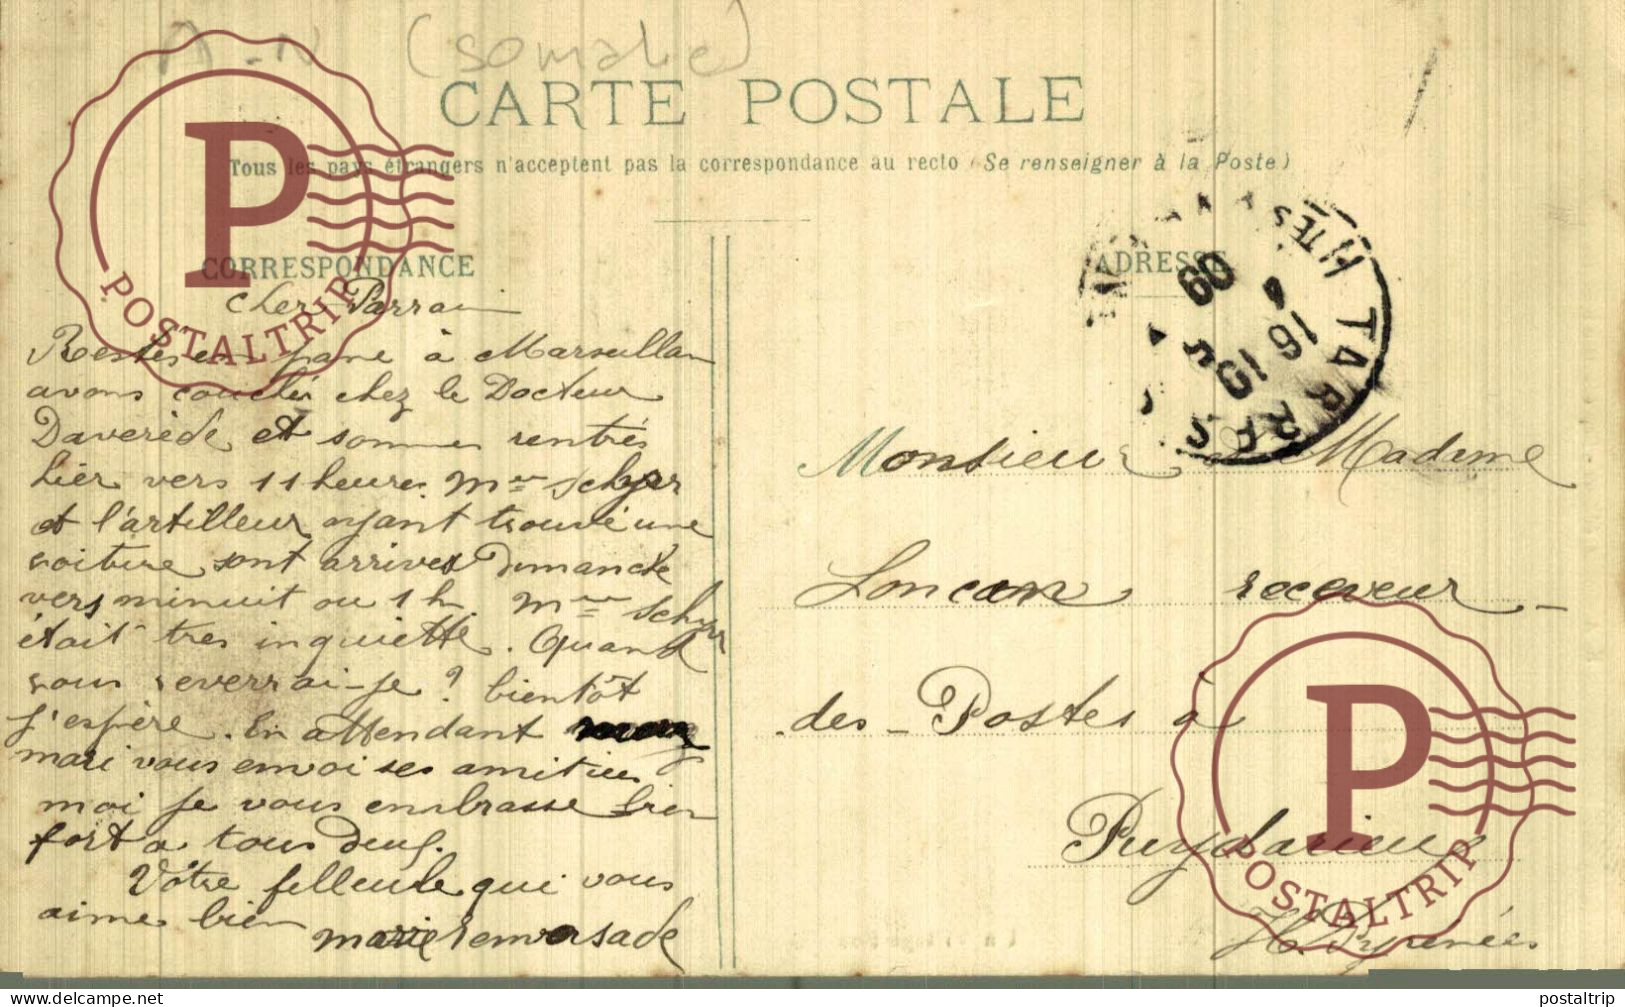 A-N (Somalie)
CARTE POSTALE
Tous les pays étrangers n'acceptent pas la correspondance au recto (Se renseigner à la Poste)
CORRESPONDANCE
Cher Parrain
Restés en pane à Marseillan
avons couchés chez le Docteur
Daverède et sommes rentrés
hier vers 11 heures. Mme
et l'artilleur ayant trouvé une
voiture sont arrives Dimanche
vers minuit ou 1 h. Mme
était tres inquiette. Quand
vous reverrai-je? bientôt
j'espère. En attendant
mari vous envoi ses amitiés
moi je vous embrasse bien
fort a tous deux.
Vôtre filleule qui vous
aime bien
Marie
ADRESSE
TARBES
HTES
16
09
Monsieur Madame
Loncan receveur
des Postes à
Puydarieux
H. Pyrenées
P
POSTALTRIP
P
POSTALTRIP
www.delcampe.net
postaltrip